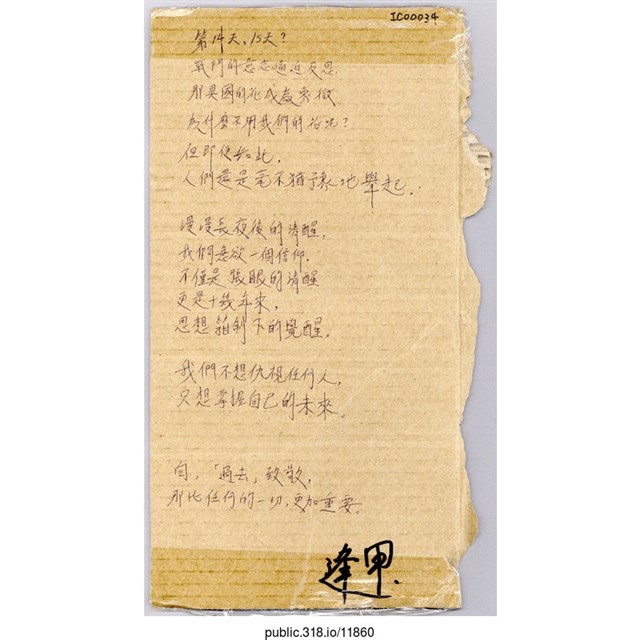 IC00034
第14天、15天？
戰鬥的意志逼近反思,
那異國的花成為象徵
為什麼不用我們的花呢？
但即便如此,
人們還是毫不猶豫地舉起.
漫漫長夜後的清醒,
我們意欲一個信仰.
不僅是張眼的清醒
更是十幾年來,
思想箝制下的覺醒.
我們不想仇視任何人,
只想掌握自己的未來.
向,「過去」致敬,
那比任何的一切,更加重要.
逢甲.
public.318.io/11860